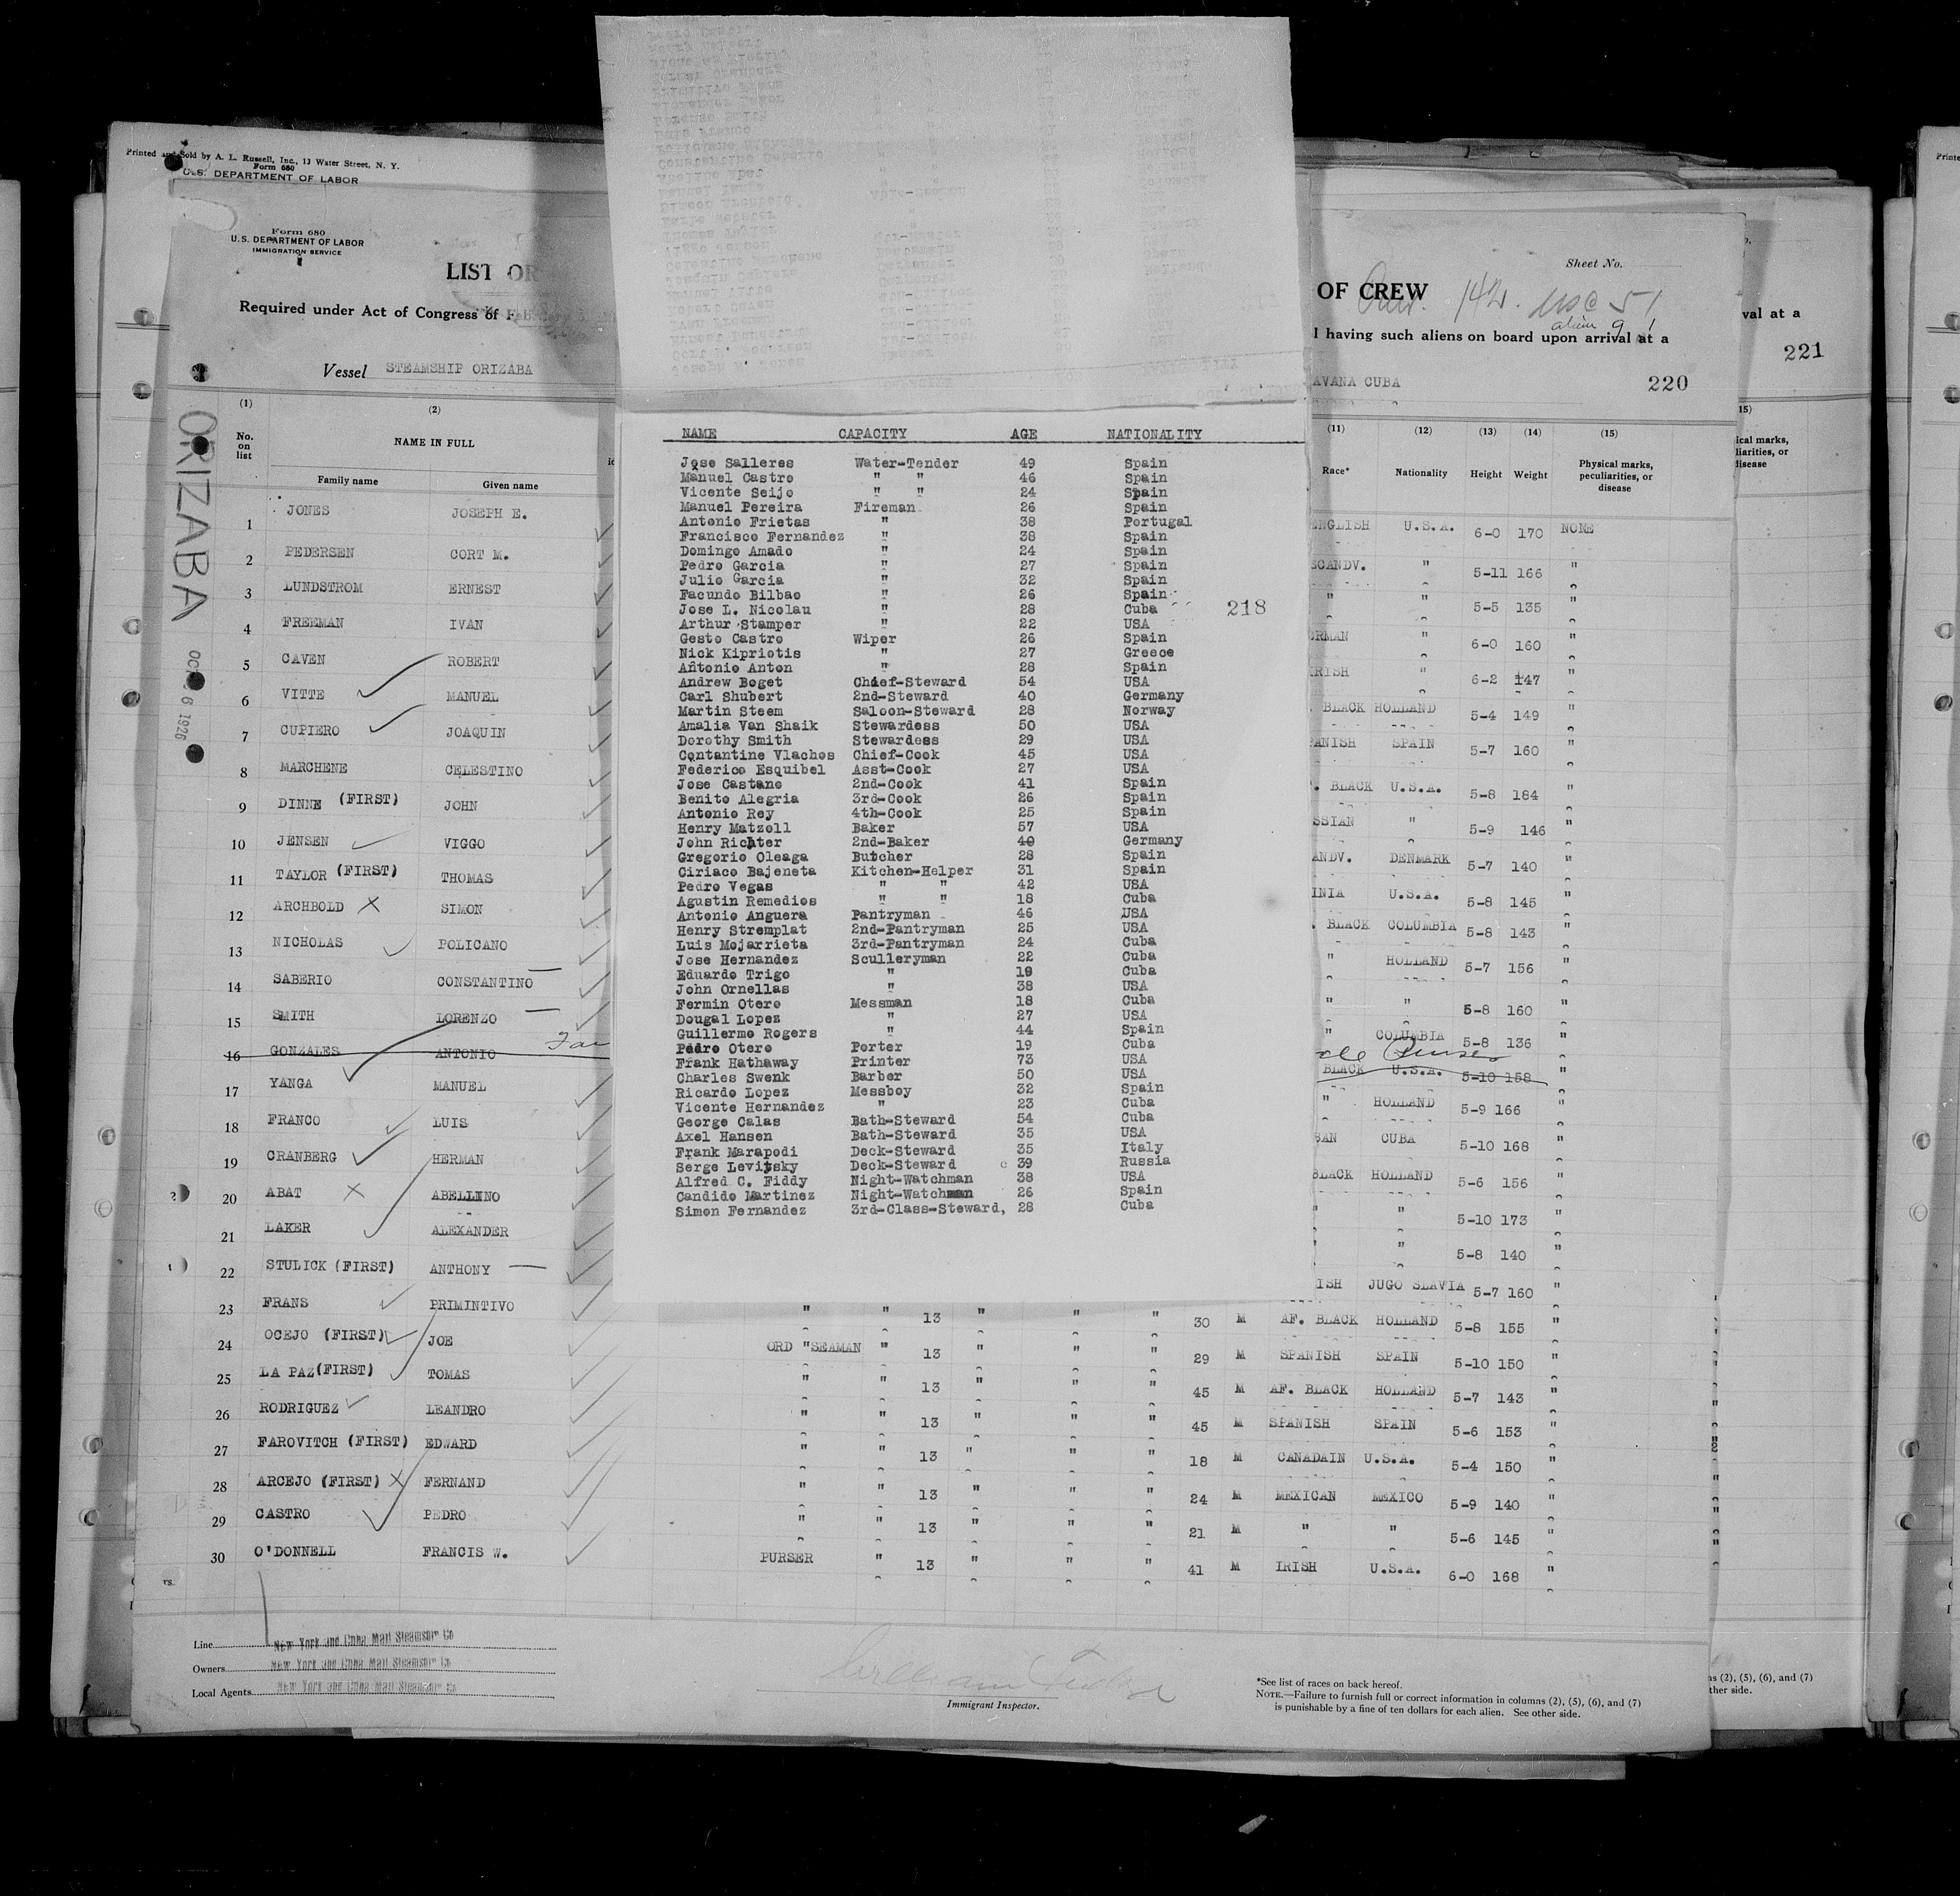 Printed and Sold by A. L. Russell, Inc., 13 Water Street, N. Y.
Form 680
U.S. DEPARTMENT OF LABOR
Form 680
U.S. DEPARTMENT OF LABOR
IMMIGRATION SERVICE
LIST OR
Required under Act of Congress of
Vessel STEAMSHIP ORIZABA
ORIZABA
(1) (2)
No. on list
NAME IN FULL
Family name Given name
1 JONES JOSEPH E.
2 PEDERSEN CORT M.
3 LUNDSTROM ERNEST
4 FREEMAN IVAN
5 CAVEN ROBERT
6 VITTE MANUEL
7 CUPIERO JOAQUIN
8 MARCHENE CELESTINO
9 DINNE (FIRST) JOHN
10 JENSEN VIGGO
11 TAYLOR (FIRST) THOMAS
12 ARCHBOLD SIMON
13 NICHOLAS POLICANO
14 SABERIO CONSTANTINO
15 SMITH LORENZO
16 GONZALES ANTONIO
17 YANGA MANUEL
18 FRANCO LUIS
19 CRANBERG HERMAN
20 ABAT ABELLINO
21 LAKER ALEXANDER
22 STULICK (FIRST) ANTHONY
23 FRANS PRIMINTIVO " " 13 " " " 30 M AF. BLACK HOLLAND 5-8 155 "
24 OCEJO (FIRST) JOE ORD "SEAMAN " 13 " " " 29 M SPANISH SPAIN 5-10 150 "
25 LA PAZ (FIRST) TOMAS " " 13 " " " 45 M AF. BLACK HOLLAND 5-7 143 "
26 RODRIGUEZ LEANDRO " " 13 " " " 45 M SPANISH SPAIN 5-6 153 "
27 FAROVITCH (FIRST) EDWARD " " 13 " " " 18 M CANADAIN U.S.A. 5-4 150 "
28 ARCEJO (FIRST) FERNAND " " 13 " " " 24 M MEXICAN MEXICO 5-9 140 "
29 CASTRO PEDRO " " 13 " " " 21 M " " 5-6 145 "
30 O'DONNELL FRANCIS W. PURSER " 13 " " " 41 M IRISH U.S.A. 6-0 168 "
Line New York and Cuba Mail Steamship Co
Owners New York and Cuba Mail Steamship Co
Local Agents New York and Cuba Mail Steamship Co
Immigrant Inspector.
*See list of races on back hereof.
NOTE.—Failure to furnish full or correct information in columns (2), (5), (6), and (7)
is punishable by a fine of ten dollars for each alien. See other side.
NAME CAPACITY AGE NATIONALITY
Jose Salleres Water-Tender 49 Spain
Manuel Castro " " 46 Spain
Vicente Seijo " " 24 Spain
Manuel Pereira Fireman 26 Spain
Antonio Frietas " 38 Portugal
Francisco Fernandez " 38 Spain
Domingo Amado " 24 Spain
Pedro Garcia " 27 Spain
Julio Garcia " 32 Spain
Facundo Bilbao " 26 Spain
Jose L. Nicolau " 28 Cuba
218
Arthur Stamper " 22 USA
Gesto Castro Wiper 26 Spain
Nick Kipriotis " 27 Greece
Antonio Anton " 28 Spain
Andrew Boget Chief-Steward 54 USA
Carl Shubert 2nd-Steward 40 Germany
Martin Steem Saloon-Steward 28 Norway
Amalia Van Shaik Stewardess 50 USA
Dorothy Smith Stewardess 29 USA
Contantine Vlachos Chief-Cook 45 USA
Federico Esquibel Asst-Cook 27 USA
Jose Castano 2nd-Cook 41 Spain
Benito Alegria 3rd-Cook 26 Spain
Antonio Rey 4th-Cook 25 Spain
Henry Matzoll Baker 57 USA
John Richter 2nd-Baker 40 Germany
Gregorio Oleaga Butcher 28 Spain
Ciriaco Bajeneta Kitchen-Helper 31 Spain
Pedro Vegas " " 42 USA
Agustin Remedios " " 18 Cuba
Antonio Anguera Pantryman 46 USA
Henry Stremplat 2nd-Pantryman 25 USA
Luis Mojarrieta 3rd-Pantryman 24 Cuba
Jose Hernandez Sculleryman 22 Cuba
Eduardo Trigo " 19 Cuba
John Ornellas " 38 USA
Fermin Otero Messman 18 Cuba
Dougal Lopez " 27 USA
Guillermo Rogers " 44 Spain
Pedro Otero Porter 19 Cuba
Frank Hathaway Printer 73 USA
Charles Swenk Barber 50 USA
Ricardo Lopez Messboy 32 Spain
Vicente Hernandez " 23 Cuba
George Calas Bath-Steward 54 Cuba
Axel Hansen Bath-Steward 35 USA
Frank Marapodi Deck-Steward 35 Italy
Serge Levitsky Deck-Steward 39 Russia
Alfred C. Fiddy Night-Watchman 38 USA
Candido Martinez Night-Watchman 26 Spain
Simon Fernandez 3rd-Class-Steward, 28 Cuba
Sheet No.
OF CREW
142.
alien 91
having such aliens on board upon arrival at a
AVANA CUBA 220
(11) (12) (13) (14) (15)
Race* Nationality Height Weight Physical marks, peculiarities, or disease
ENGLISH U.S.A. 6-0 170 NONE
SCANDV. " 5-11 166 "
" " 5-5 135 "
RMAN " 6-0 160 "
RISH " 6-2 147 "
BLACK HOLLAND 5-4 149 "
ANISH SPAIN 5-7 160 "
. BLACK U.S.A. 5-8 184 "
SSIAN " 5-9 146 "
ANDV. DENMARK 5-7 140 "
INIA U.S.A. 5-8 145 "
. BLACK COLUMBIA 5-8 143 "
" HOLLAND 5-7 156 "
" " 5-8 160 "
" COLUMBIA 5-8 136 "
BLACK U.S.A. 5-10 158
" HOLLAND 5-9 166 "
BAN CUBA 5-10 168 "
BLACK HOLLAND 5-6 156 "
" " 5-10 173 "
" " 5-8 140 "
ISH JUGO SLAVIA 5-7 160 "
val at a
221
15)
ical marks,
liarities, or
disease
ns (2), (5), (6), and (7)
ther side.